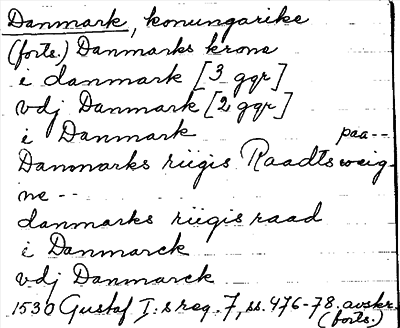 Danmark, konungarike
(forts.) Danmarks krone
i danmark [3 ggr]
vdj Danmark [2 ggr]
i Danmark
Danmarks riigis Raadts paa-- weig-
ne --
danmarks riigis raad
i Danmarck
vdj Danmarck
1530 Gustaf I:s reg. 7, ss. 476-78. avskr.
(forts.)